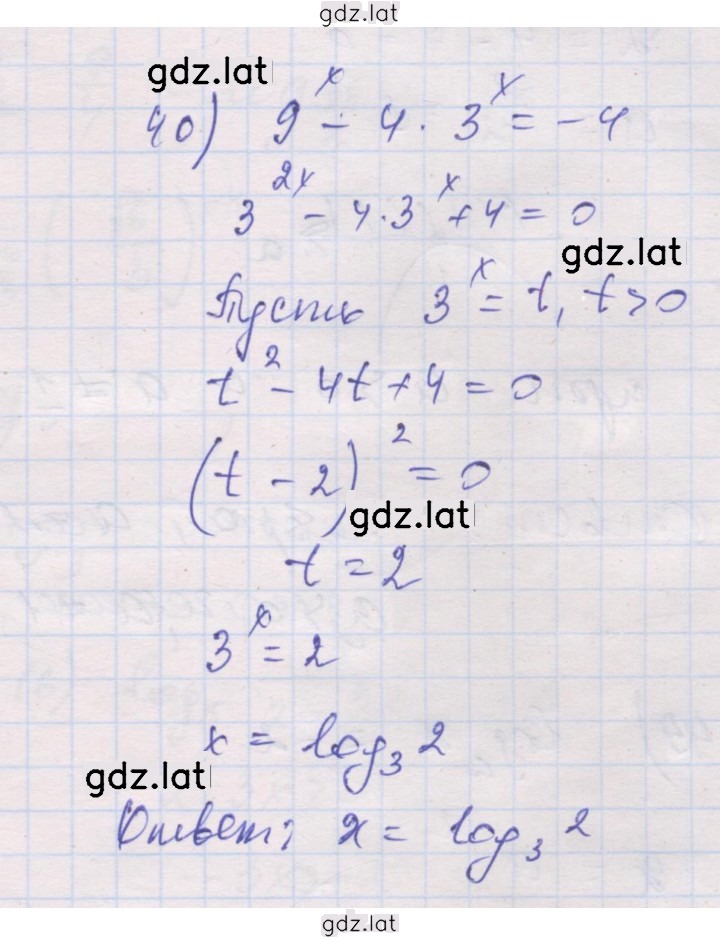 gdz.lat
gdz.lat
40) 9^x - 4 · 3^x = -4
3^{2x} - 4·3^x + 4 = 0
gdz.lat
Пусть 3^x = t, t > 0
t^2 - 4t + 4 = 0
(t - 2)^2 = 0
gdz.lat
t = 2
3^x = 2
x = log_3 2
gdz.lat
Ответ: x = log_3 2
gdz.lat